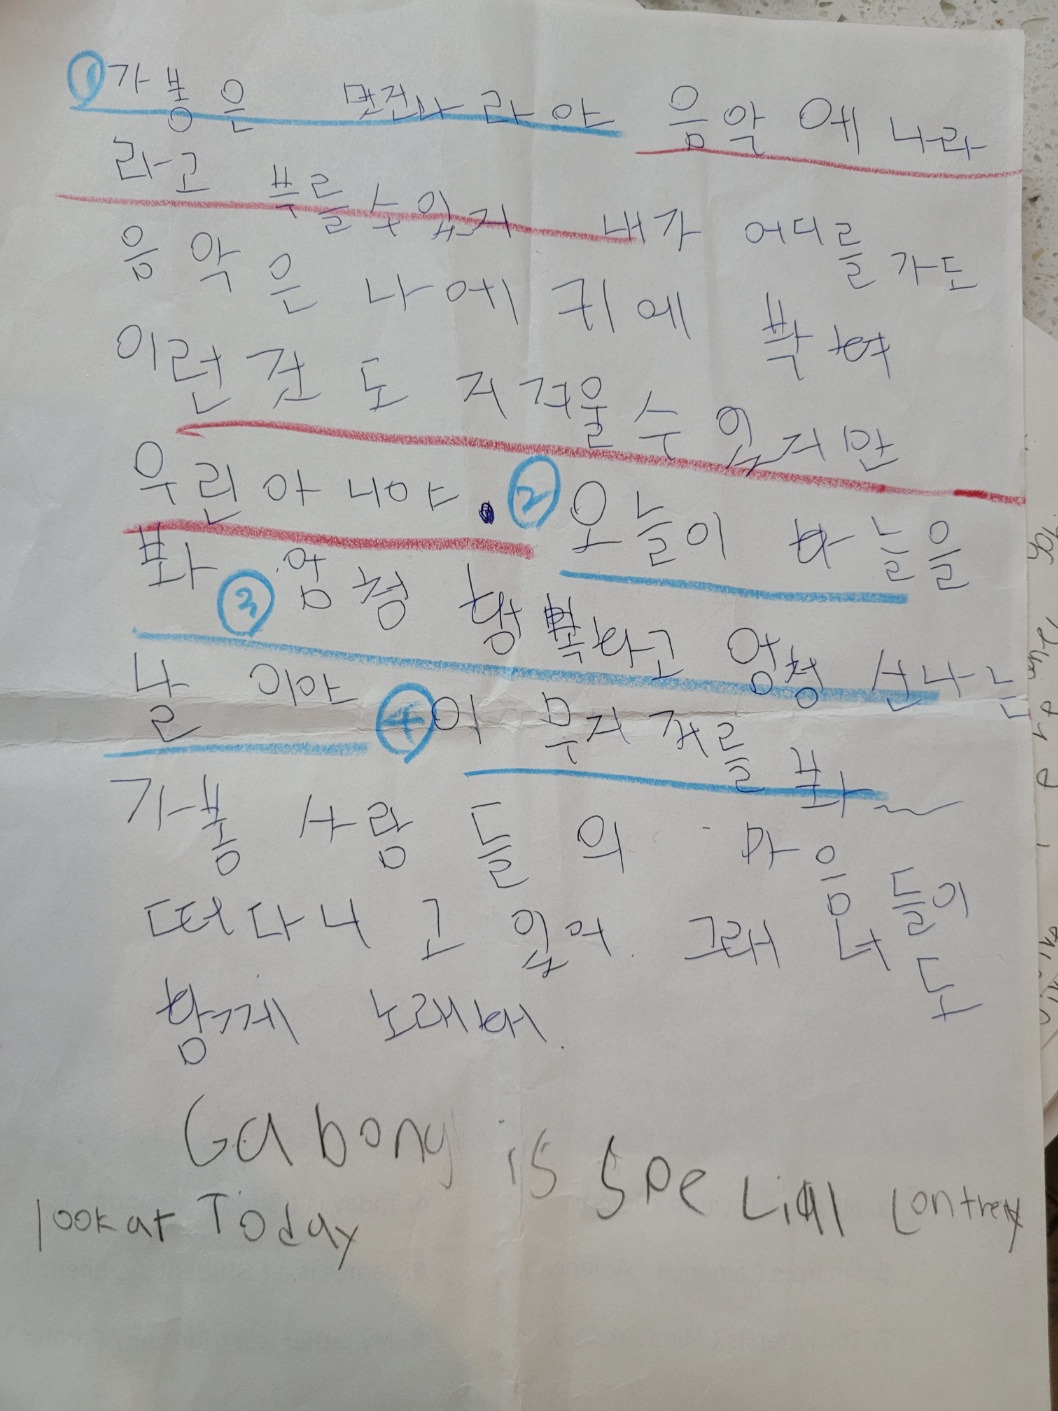 ① 가봉은 멋진나라야 음악에 나라
라고 부를수있지 내가 어디를가도
음악은 나에 귀에 박혀
이런것도 지겨울수 있지만
우린아니야. ② 오늘이 하늘을
봐 ③ 엄청 행복하고 엄청 신나는
날이야 ④ 이 무지개를 봐~
가봉 사람들의 마음들이
떠다니고 있어. 그래 너도
함께 노래해.
Gabong is speLial Lontrey
look at Today